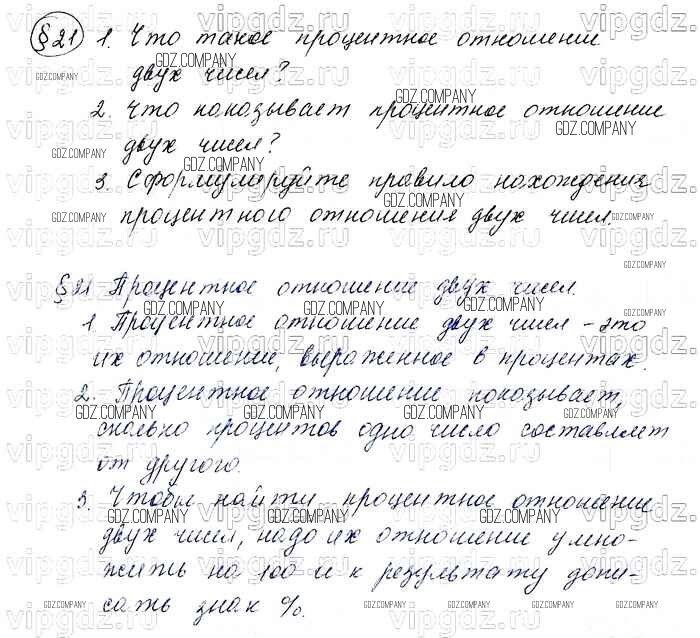 §21 1. Что такое процентное отношение
двух чисел?
2. Что показывает процентное отношение
двух чисел?
3. Сформулируйте правило нахождения
процентного отношения двух чисел.
§21 Процентное отношение двух чисел.
1 Процентное отношение двух чисел – это
их отношение, выраженное в процентах.
2. Процентное отношение показывает,
сколько процентов одно число составляет
от другого.
3. Чтобы найти процентное отношение
двух чисел, надо их отношение умно-
жить на 100 и к результату допи-
сать знак %.